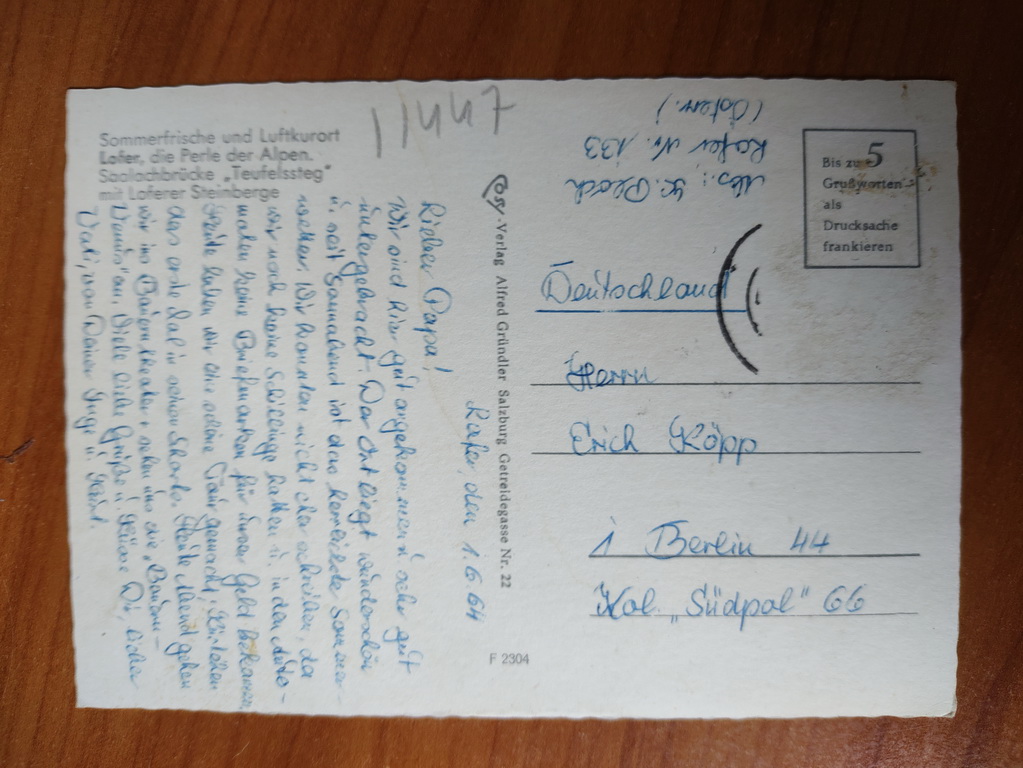 Sommerfrische und Luftkurort
Lofer, die Perle der Alpen.
Saalachbrücke „Teufelssteg“
mit Loferer Steinberge
11447
Lofer, den 1.6.64
Lieber Papa!
Wir sind hier gut angekommen u. sehr gut
untergebracht. Der Ort liegt wunderschön
u. seit Sonnabend ist das herrlichste Sommer-
wetter. Wir konnten nicht eher schreiben, da
wir noch keine Schillinge hatten u. in den Auto-
maten keine Briefmarken für unser Geld bekamen.
Heute haben wir eine schöne Tour gemacht.
das erste Mal in schon Shorts. Heute Abend gehen
wir ins Bauerntheater u. sehen uns die
an. Viele liebe Grüße u. Küsse Dir, lieber
Vati, von Deiner Inge u.
Cosy-Verlag Alfred Gründler Salzburg Getreidegasse Nr. 22
F 2304
Abs.:
Lofer Nr. 133
(Österr.)
Bis zu 5
Grußworten
als
Drucksache
frankieren
Deutschland
Herrn
Erich Köpp
1 Berlin 44
Kol. „Südpol“ 66